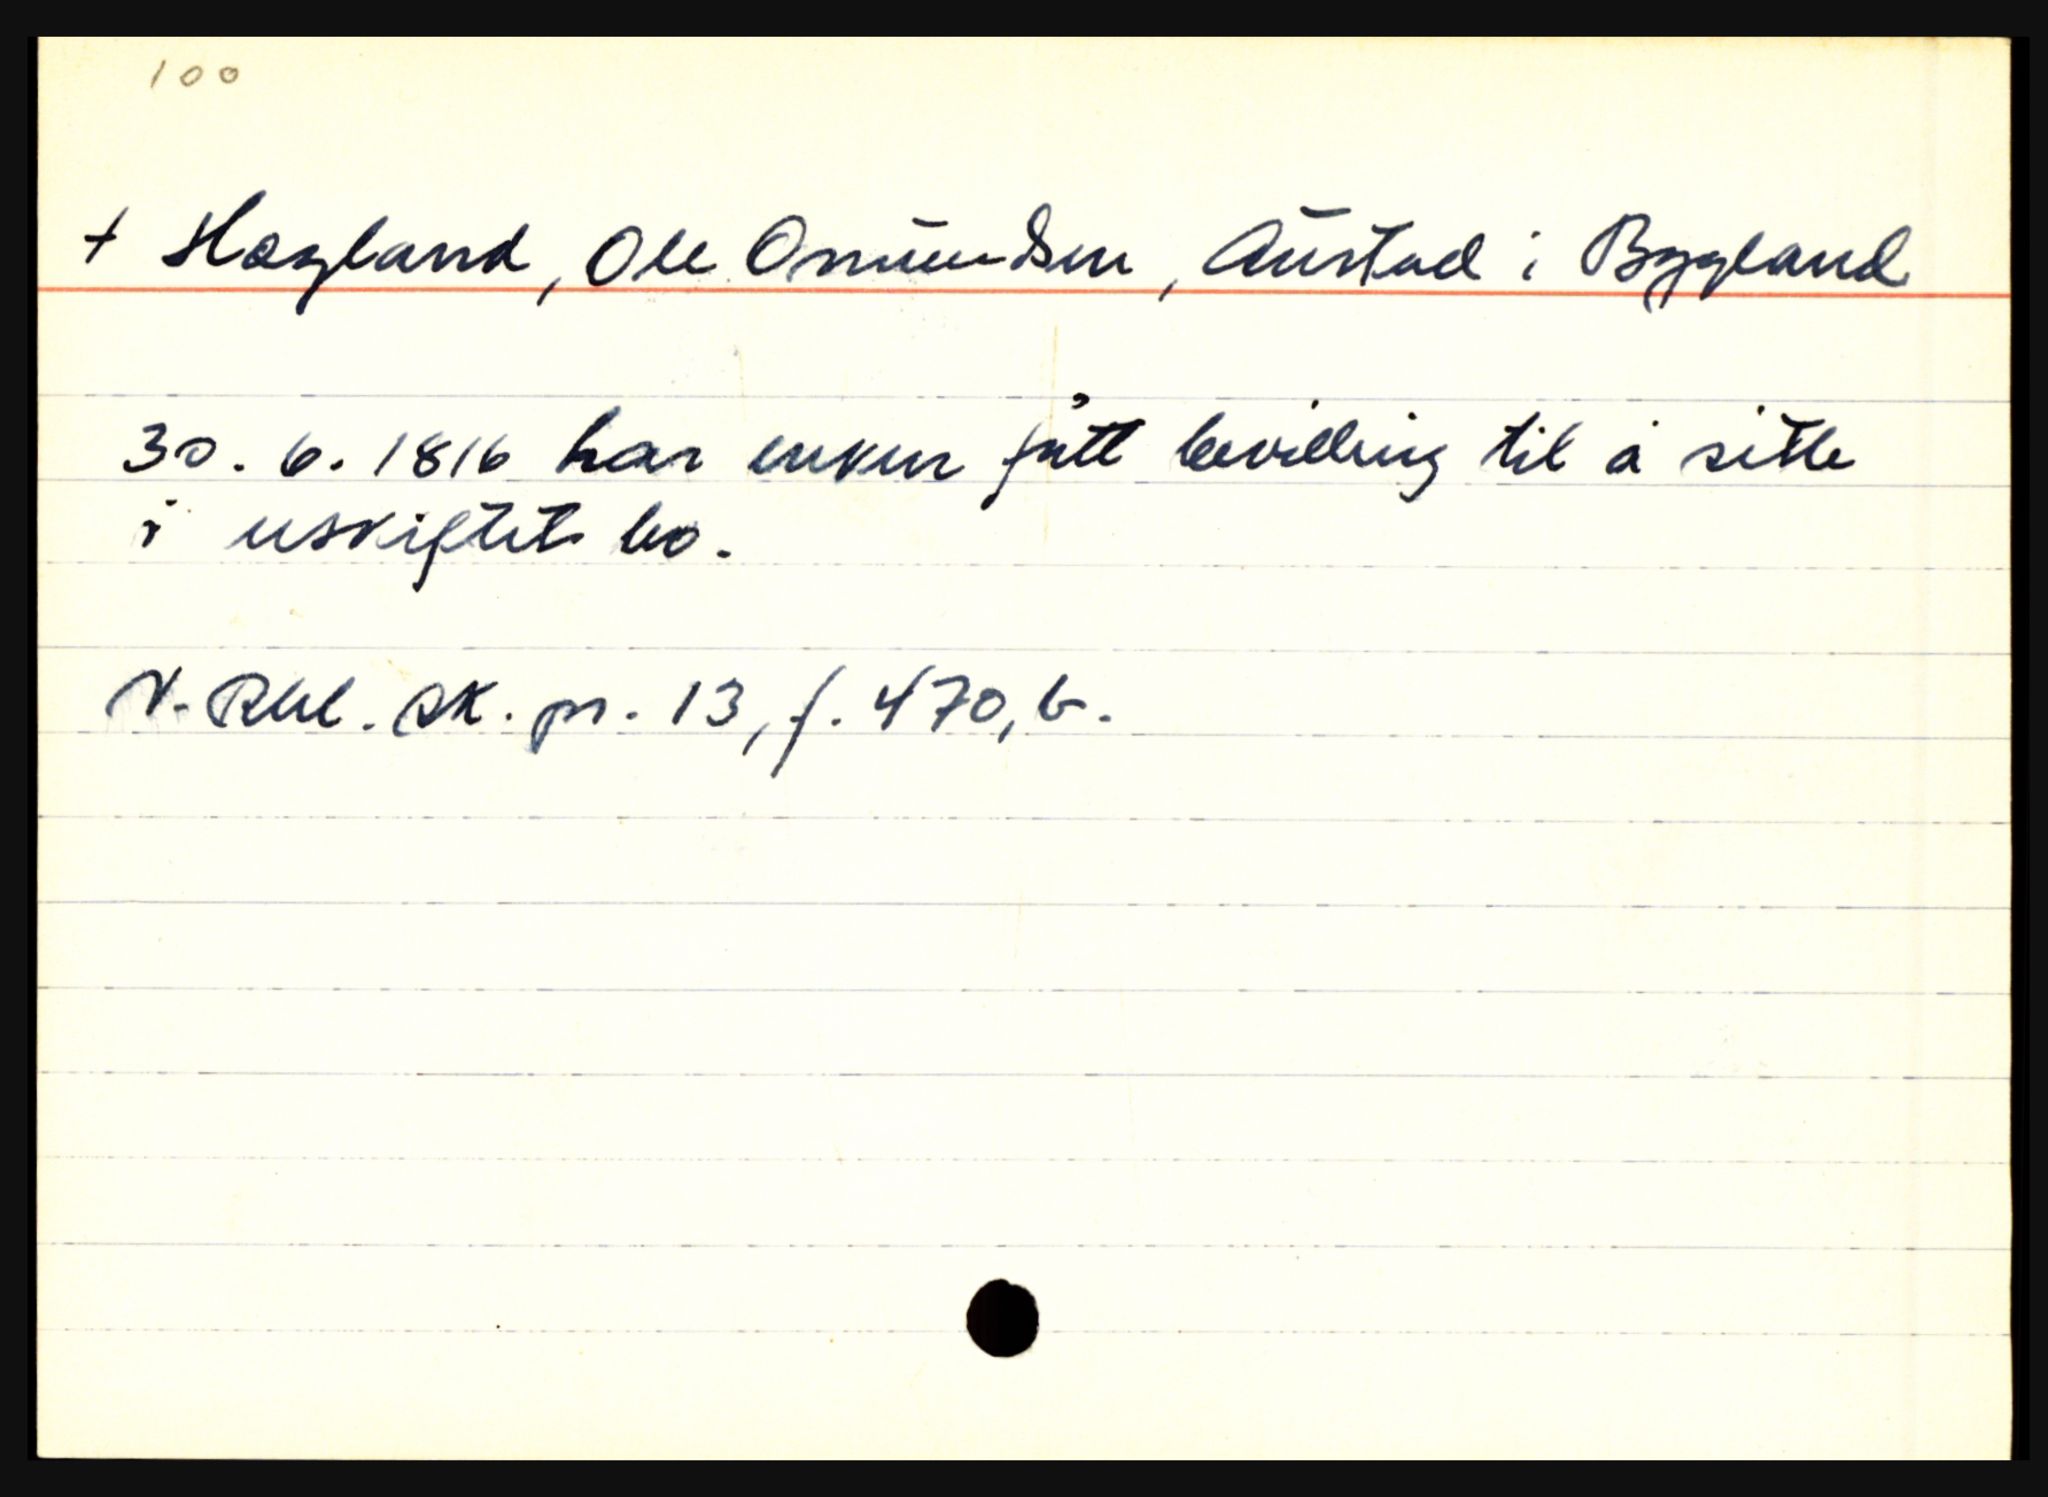 100
+ Høgland, Ole Omundsen, Austad i Bygland
30. 6. 1816 har enken fått bevilling til å sitte
i uskiftet bo.
N. Rbl. sk. pr. 13, f. 470, b.